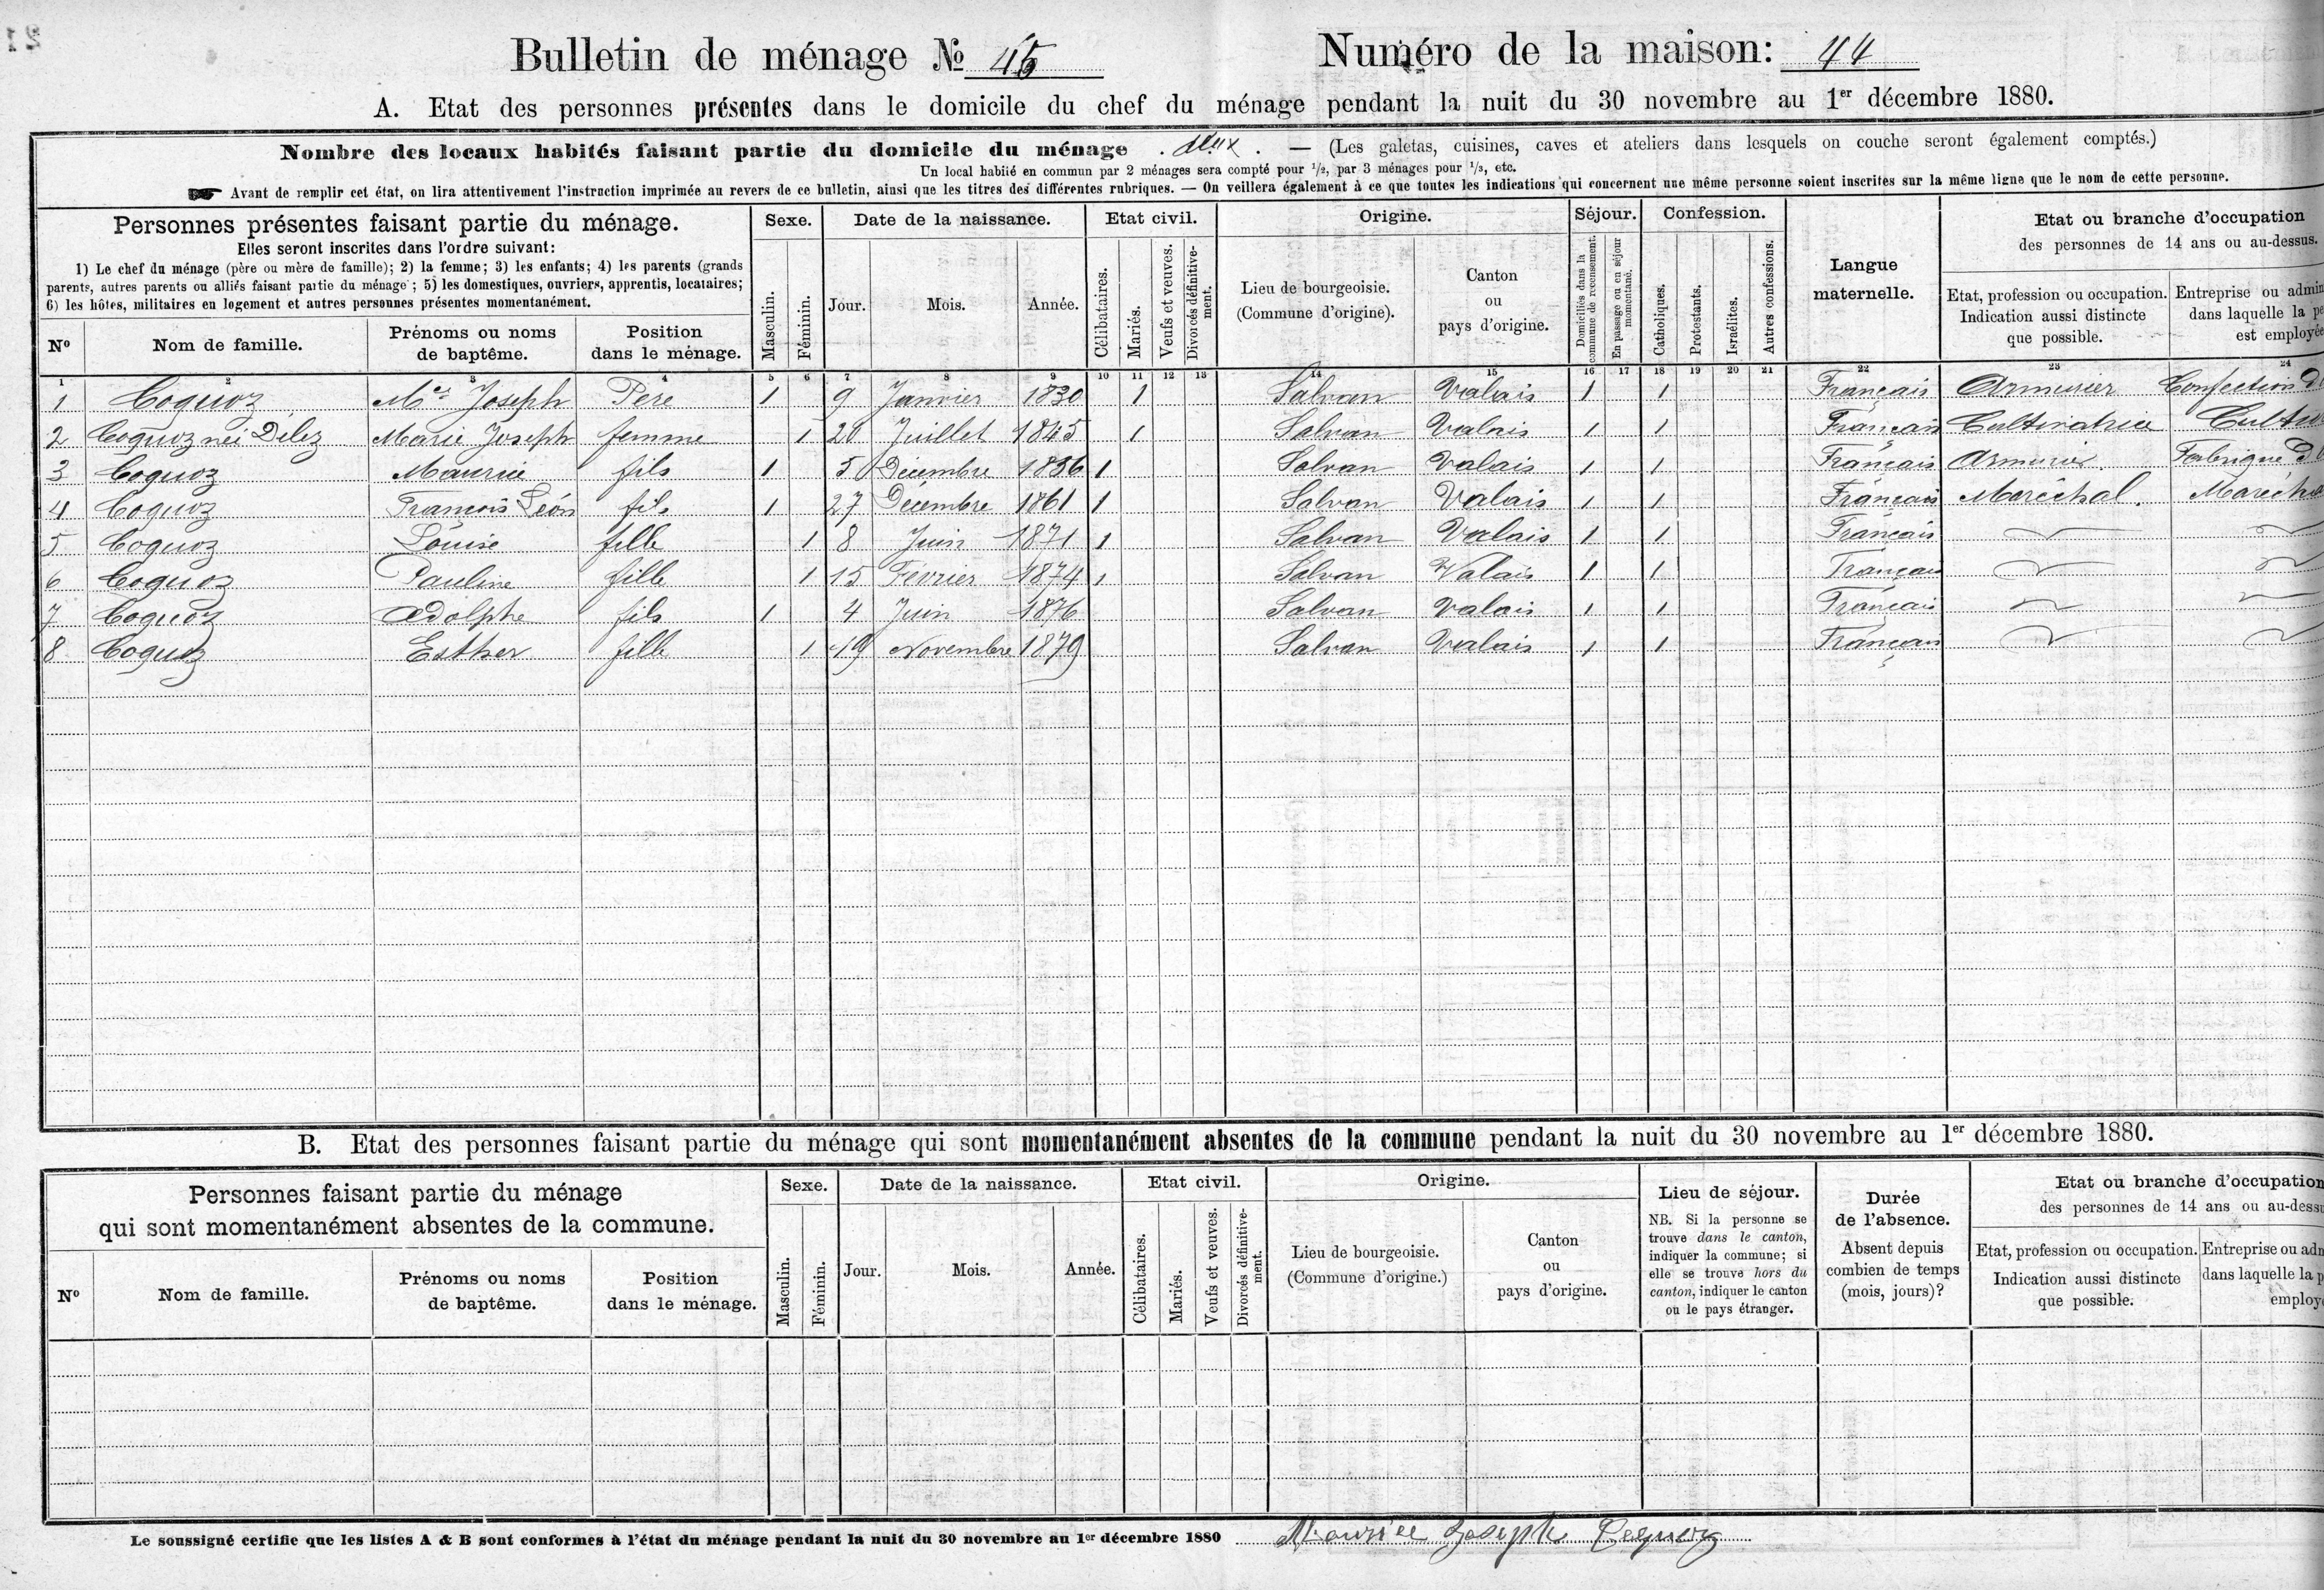 Bulletin de ménage № 45
Numéro de la maison: 44
A. Etat des personnes présentes dans le domicile du chef du ménage pendant la nuit du 30 novembre au 1er décembre 1880.
Nombre des locaux habités faisant partie du domicile du ménage . deux . — (Les galetas, cuisines, caves et ateliers dans lesquels on couche seront également comptés.)
Un local habité en commun par 2 ménages sera compté pour 1/2, par 3 ménages pour 1/3, etc.
Avant de remplir cet état, on lira attentivement l'instruction imprimée au revers de ce bulletin, ainsi que les titres des différentes rubriques. — On veillera également à ce que toutes les indications qui concernent une même personne soient inscrites sur la même ligne que le nom de cette personne.
Personnes présentes faisant partie du ménage.
Elles seront inscrites dans l'ordre suivant:
1) Le chef du ménage (père ou mère de famille); 2) la femme; 3) les enfants; 4) les parents (grands
parents, autres parents ou alliés faisant partie du ménage; 5) les domestiques, ouvriers, apprentis, locataires;
6) les hôtes, militaires en logement et autres personnes présentes momentanément.
No
Nom de famille.
Prénoms ou noms
de baptême.
Position
dans le ménage.
Sexe.
Masculin.
Féminin.
Date de la naissance.
Jour.
Mois.
Année.
Etat civil.
Célibataires.
Mariés.
Veufs et veuves.
Divorcés définitive-
ment.
Origine.
Lieu de bourgeoisie.
(Commune d'origine).
Canton
ou
pays d'origine.
Séjour.
Domiciliés dans la
commune de recensement.
En passage ou en séjour
momentané.
Confession.
Catholiques.
Protestants.
Israélites.
Autres confessions.
Langue
maternelle.
Etat ou branche d'occupation
des personnes de 14 ans ou au-dessus.
Etat, profession ou occupation.
Indication aussi distincte
que possible.
Entreprise ou admin
dans laquelle la pe
est employée
1 2 3 4 5 6 7 8 9 10 11 12 13 14 15 16 17 18 19 20 21 22 23 24
1 Coquoz Mce Joseph Père 1 9 Janvier 1830 1 Salvan Valais 1 1 Français Armurier Confection d
2 Coquoz née Délez Marie Joseph femme 1 20 Juillet 1845 1 Salvan Valais 1 1 Français Cultivatrice Cultu
3 Coquoz Maurice fils 1 5 Décembre 1856 1 Salvan Valais 1 1 Français Armurier. Fabrique d
4 Coquoz François Léon fils 1 27 Décembre 1861 1 Salvan Valais 1 1 Français Maréchal. Marécha
5 Coquoz Louise fille 1 8 Juin 1871 1 Salvan Valais 1 1 Français
6 Coquoz Pauline fille 1 15 Février 1874 1 Salvan Valais 1 1 Français
7 Coquoz Adolphe fils 1 4 Juin 1876 Salvan Valais 1 1 Français
8 Coquoz Esther fille 1 19 Novembre 1879 Salvan Valais 1 1 Français
B. Etat des personnes faisant partie du ménage qui sont momentanément absentes de la commune pendant la nuit du 30 novembre au 1er décembre 1880.
Personnes faisant partie du ménage
qui sont momentanément absentes de la commune.
No
Nom de famille.
Prénoms ou noms
de baptême.
Position
dans le ménage.
Sexe.
Masculin.
Féminin.
Date de la naissance.
Jour.
Mois.
Année.
Etat civil.
Célibataires.
Mariés.
Veufs et veuves.
Divorcés définitive-
ment.
Origine.
Lieu de bourgeoisie.
(Commune d'origine.)
Canton
ou
pays d'origine.
Lieu de séjour.
NB. Si la personne se
trouve dans le canton,
indiquer la commune; si
elle se trouve hors du
canton, indiquer le canton
ou le pays étranger.
Durée
de l'absence.
Absent depuis
combien de temps
(mois, jours)?
Etat ou branche d'occupation
des personnes de 14 ans ou au-dessu
Etat, profession ou occupation.
Indication aussi distincte
que possible.
Entreprise ou adm
dans laquelle la p
employé
Le soussigné certifie que les listes A & B sont conformes à l'état du ménage pendant la nuit du 30 novembre au 1er décembre 1880 Maurice Joseph Coquoz